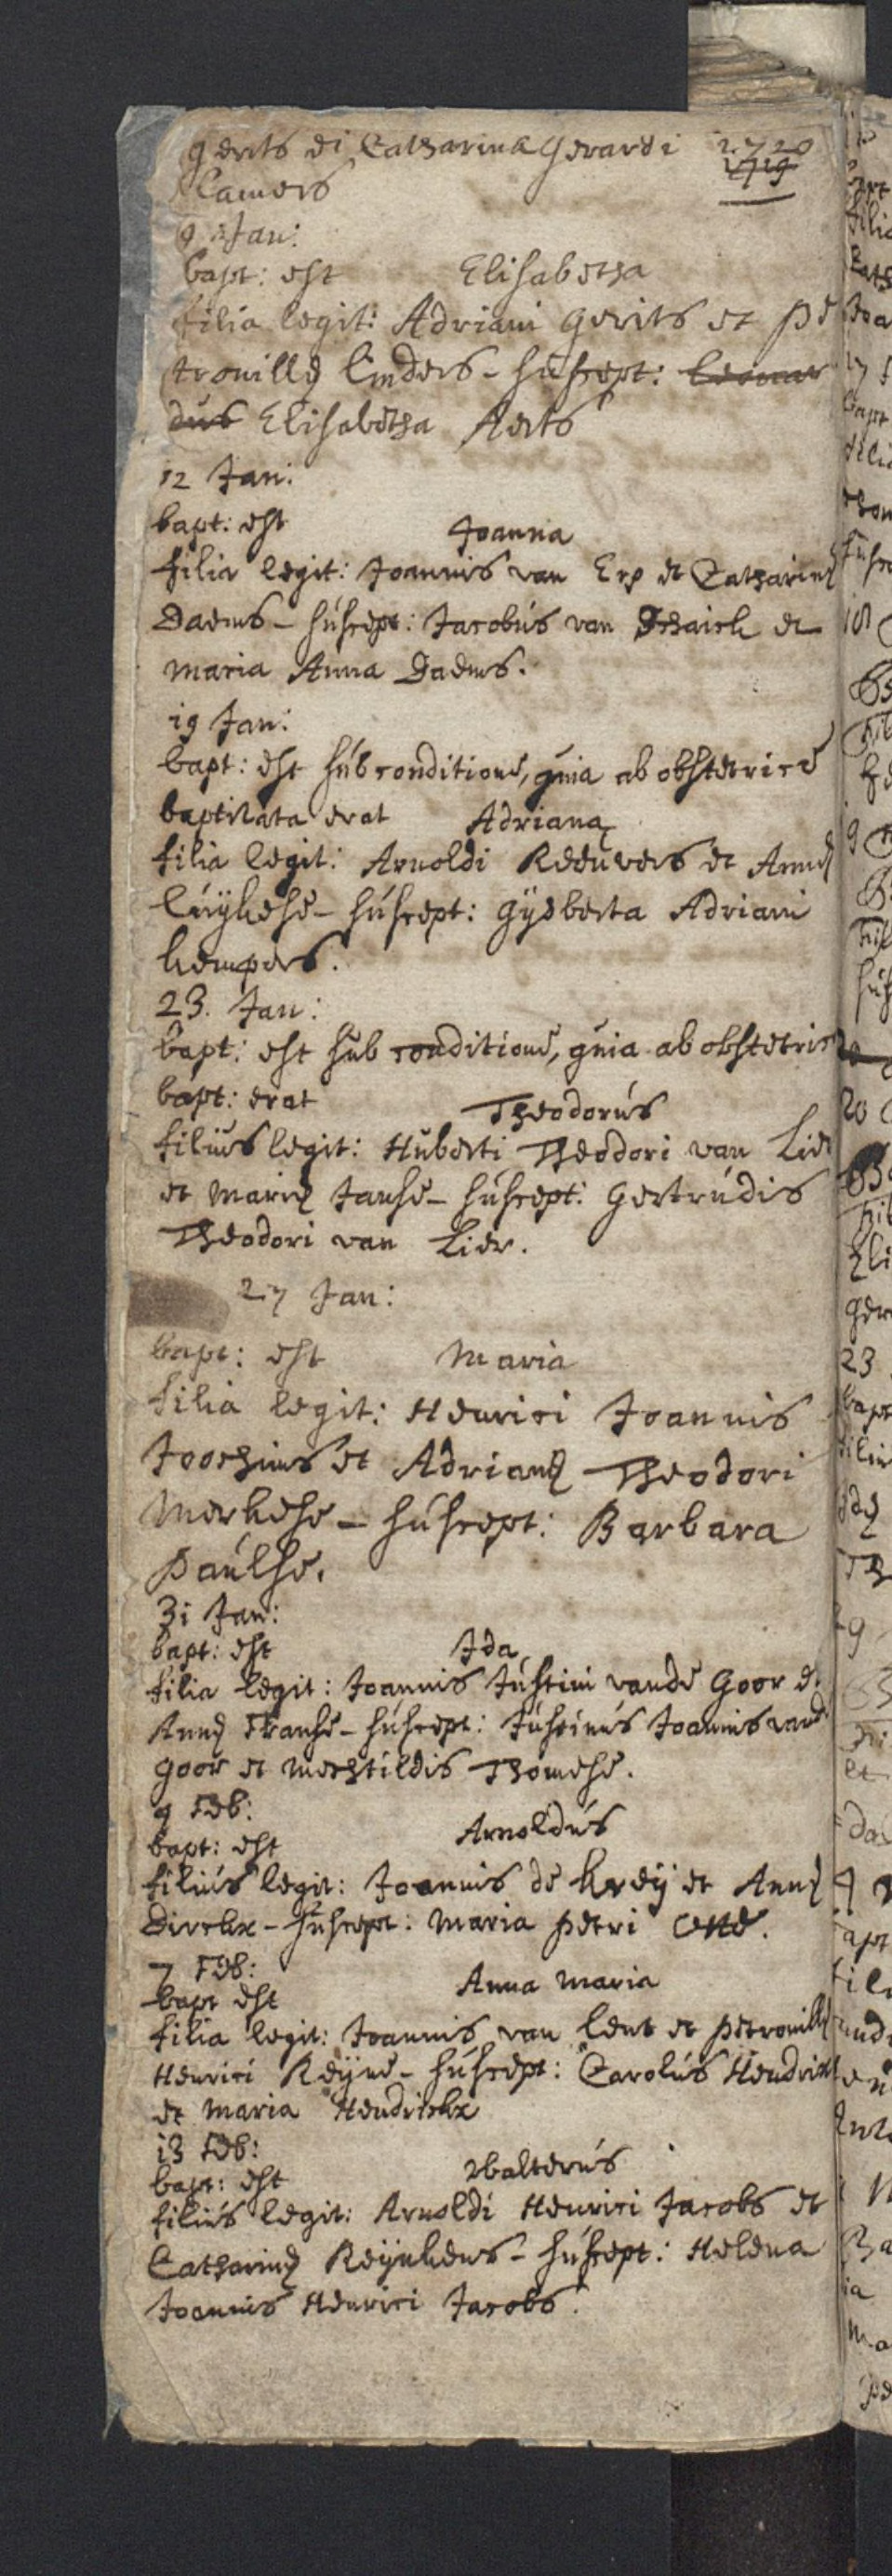 gerits et Catharina Gerardi 1720
Camers 1719
9 Jan:
bapt: est Elisabetha
filia legit: Adriani Gerits et Pe
tronillę Linders - suscept: Leonar
dus Elisabetha Aerts
12 Jan:
bapt: est Joanna
filia legit: Joannis van Erp et Catharinę
Daems - suscept: Jacobus van Schaick et
Maria Anna Daems.
19 Jan:
bapt: est sub conditione, quia ab obstetrice
baptizata erat Adriana
filia legit: Arnoldi Reeuvers et Annę
Cuijkese - suscept: Gijsberta Adriani
kempers.
23. Jan:
bapt: est sub conditione, quia ab obstetric
bapt: erat Theodorus
filius legit: Huberti Theodori van Lier
et Marię Janse - suscept: Gertrudis
Theodori van Lier.
27 Jan:
bapt: est Maria
filia legit: Henrici Joannis
Joochims et Adrianę Theodori
Merkese - suscept: Barbara
Paulse.
31 Jan:
bapt: est Ida
filia legit: Joannis Justini vande Goor et
Annę Franse - suscept: Justinus Joannis vande
Goor et Mechtildis Thomese.
4 Feb:
bapt: est Arnoldus
filius legit: Joannis de kreij et Annę
Dirckx - suscept: Maria Petri Otte.
7 Feb:
bapt est Anna Maria
filia legit: Joannis van Lent et Petronillę
Henrici Reijne - suscept: Carolus Hendrickx
et Maria Hendrickx
13 Feb:
bapt: est Walterus
filius legit: Arnoldi Henrici Jacobs et
Catharinę Reijnkens - suscept: Helena
Joannis Henrici Jacobs.